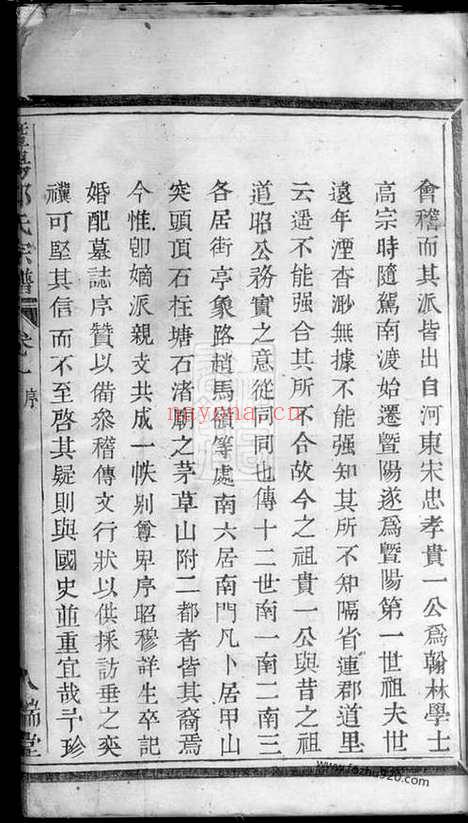 會稽而其派皆出自河東宋忠孝貴一公爲翰林學士
高宗時隨駕南渡始遷暨陽遂爲暨陽第一世祖夫世
遠年湮杳渺無據不能强知其所不知隔省連郡道里
云遥不能强合其所不合故今之祖貴一公與昔之祖
道昭公務實之意從同同也傳十二世南一南二南三
各居街亭象路趙馬嶺等處南六居南門凡卜居甲山
突頭頂石柱塘石渚廟之茅草山附二都者皆其裔焉
今惟卽嫡派親支共成一帙别尊卑序昭穆詳生卒記
婚配墓誌序贊以備叅稽傳文行狀以供採訪垂之奕
禩可堅其信而不至啓其疑則與國史並重宜哉予珍
氏宗譜
序
堂
nayona.cn
www.fozhu920.com